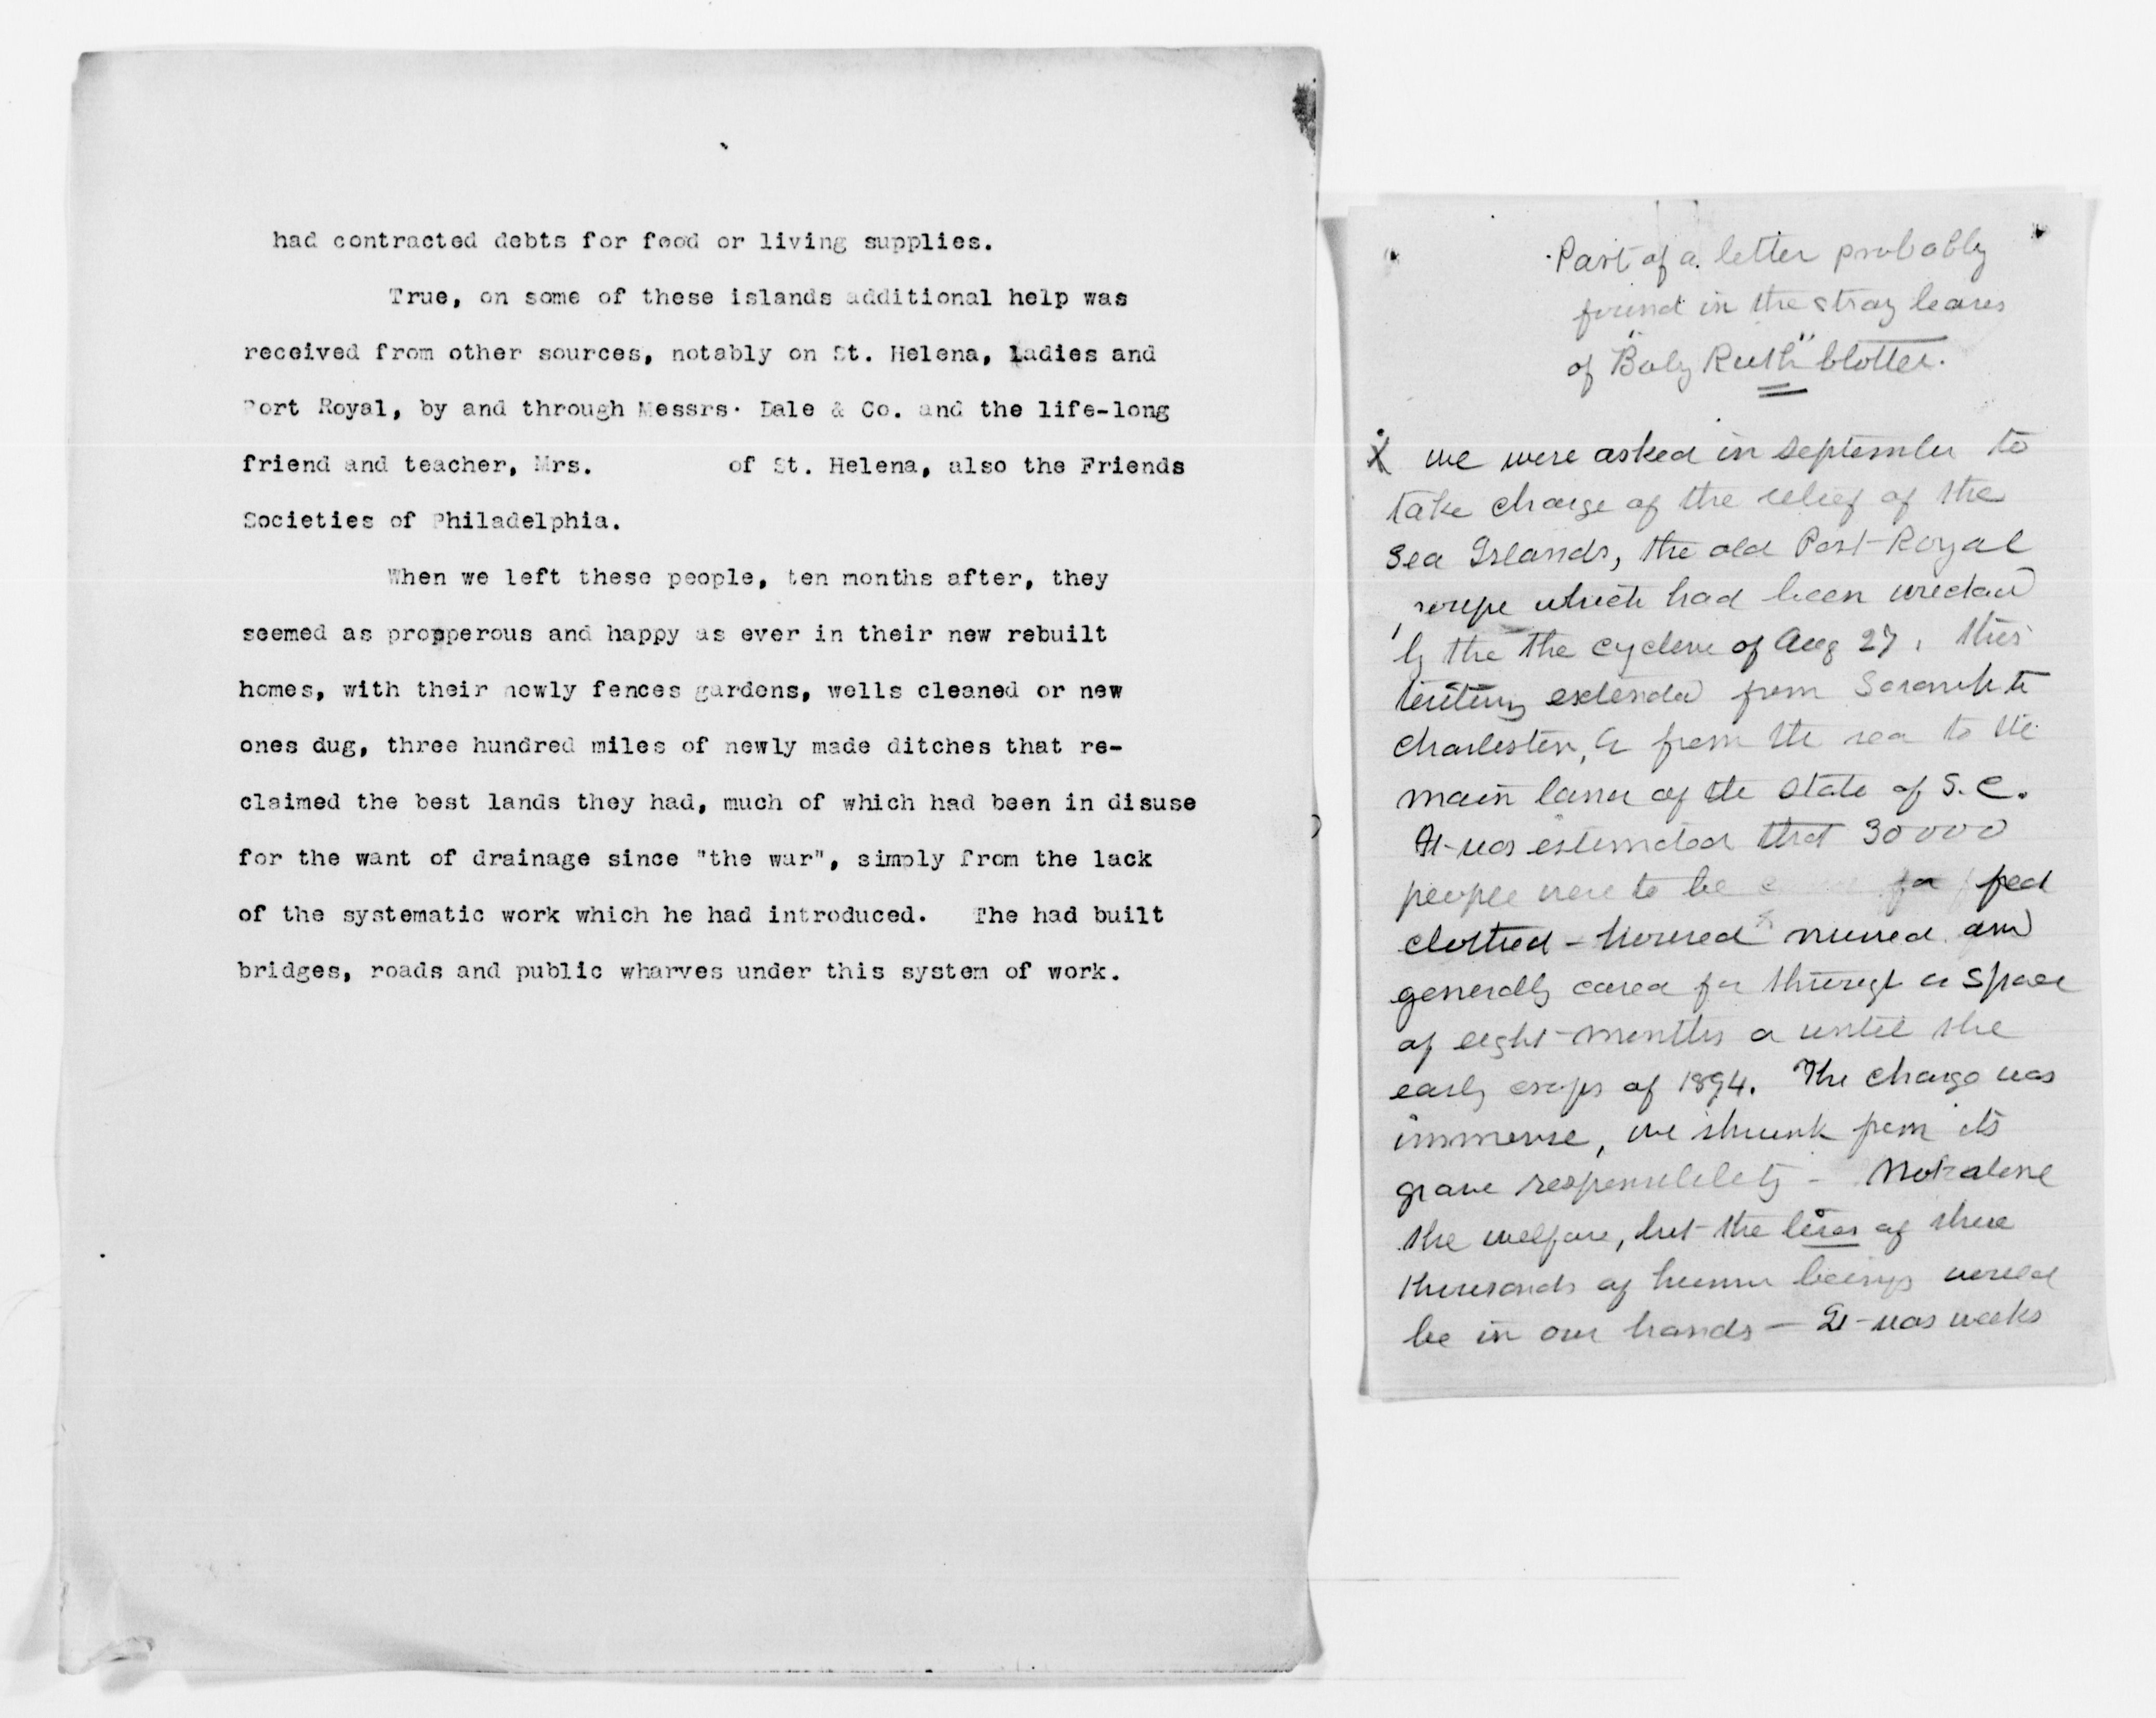 had contracted debts for food or living supplies.
True, on some of these islands additional help was
received from other sources, notably on St. Helena, Ladies and
Port Royal, by and through Messrs. Dale & Co. and the life-long
friend and teacher, Mrs. of St. Helena, also the Friends
Societies of Philadelphia.
When we left these people, ten months after, they
seemed as propperous and happy as ever in their new rebuilt
homes, with their newly fences gardens, wells cleaned or new
ones dug, three hundred miles of newly made ditches that re-
claimed the best lands they had, much of which had been in disuse
for the want of drainage since "the war", simply from the lack
of the systematic work which he had introduced. The had built
bridges, roads and public wharves under this system of work.
Part of a letter probably
found in the stray leaves
of "Baby Ruth" blotter.
X we were asked in September to
take charge of the relief of the
Sea Islands, the old Port-Royal
which had been wrecked
by the the cyclone of Aug 27. this
territory extended from Savannah to
Charleston, & from the sea to the
main land of the State of S.C.
It was estimated that 30000
people were to be for fed
clothed - housed nursed and
generally cared for through a space
of eight months a until the
early crops of 1894. The charge was
immense, we shrunk from its
grave responsibility - Not alone
the welfare, but the lives of these
thousands of human beings would
be in our hands - It was weeks